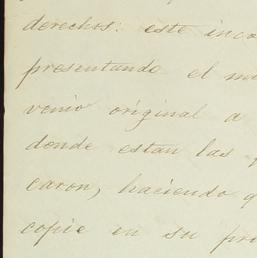 derechos: este inco
presentando el m
venio original a
donde estan las
caron, haciendo q
copie en su pro